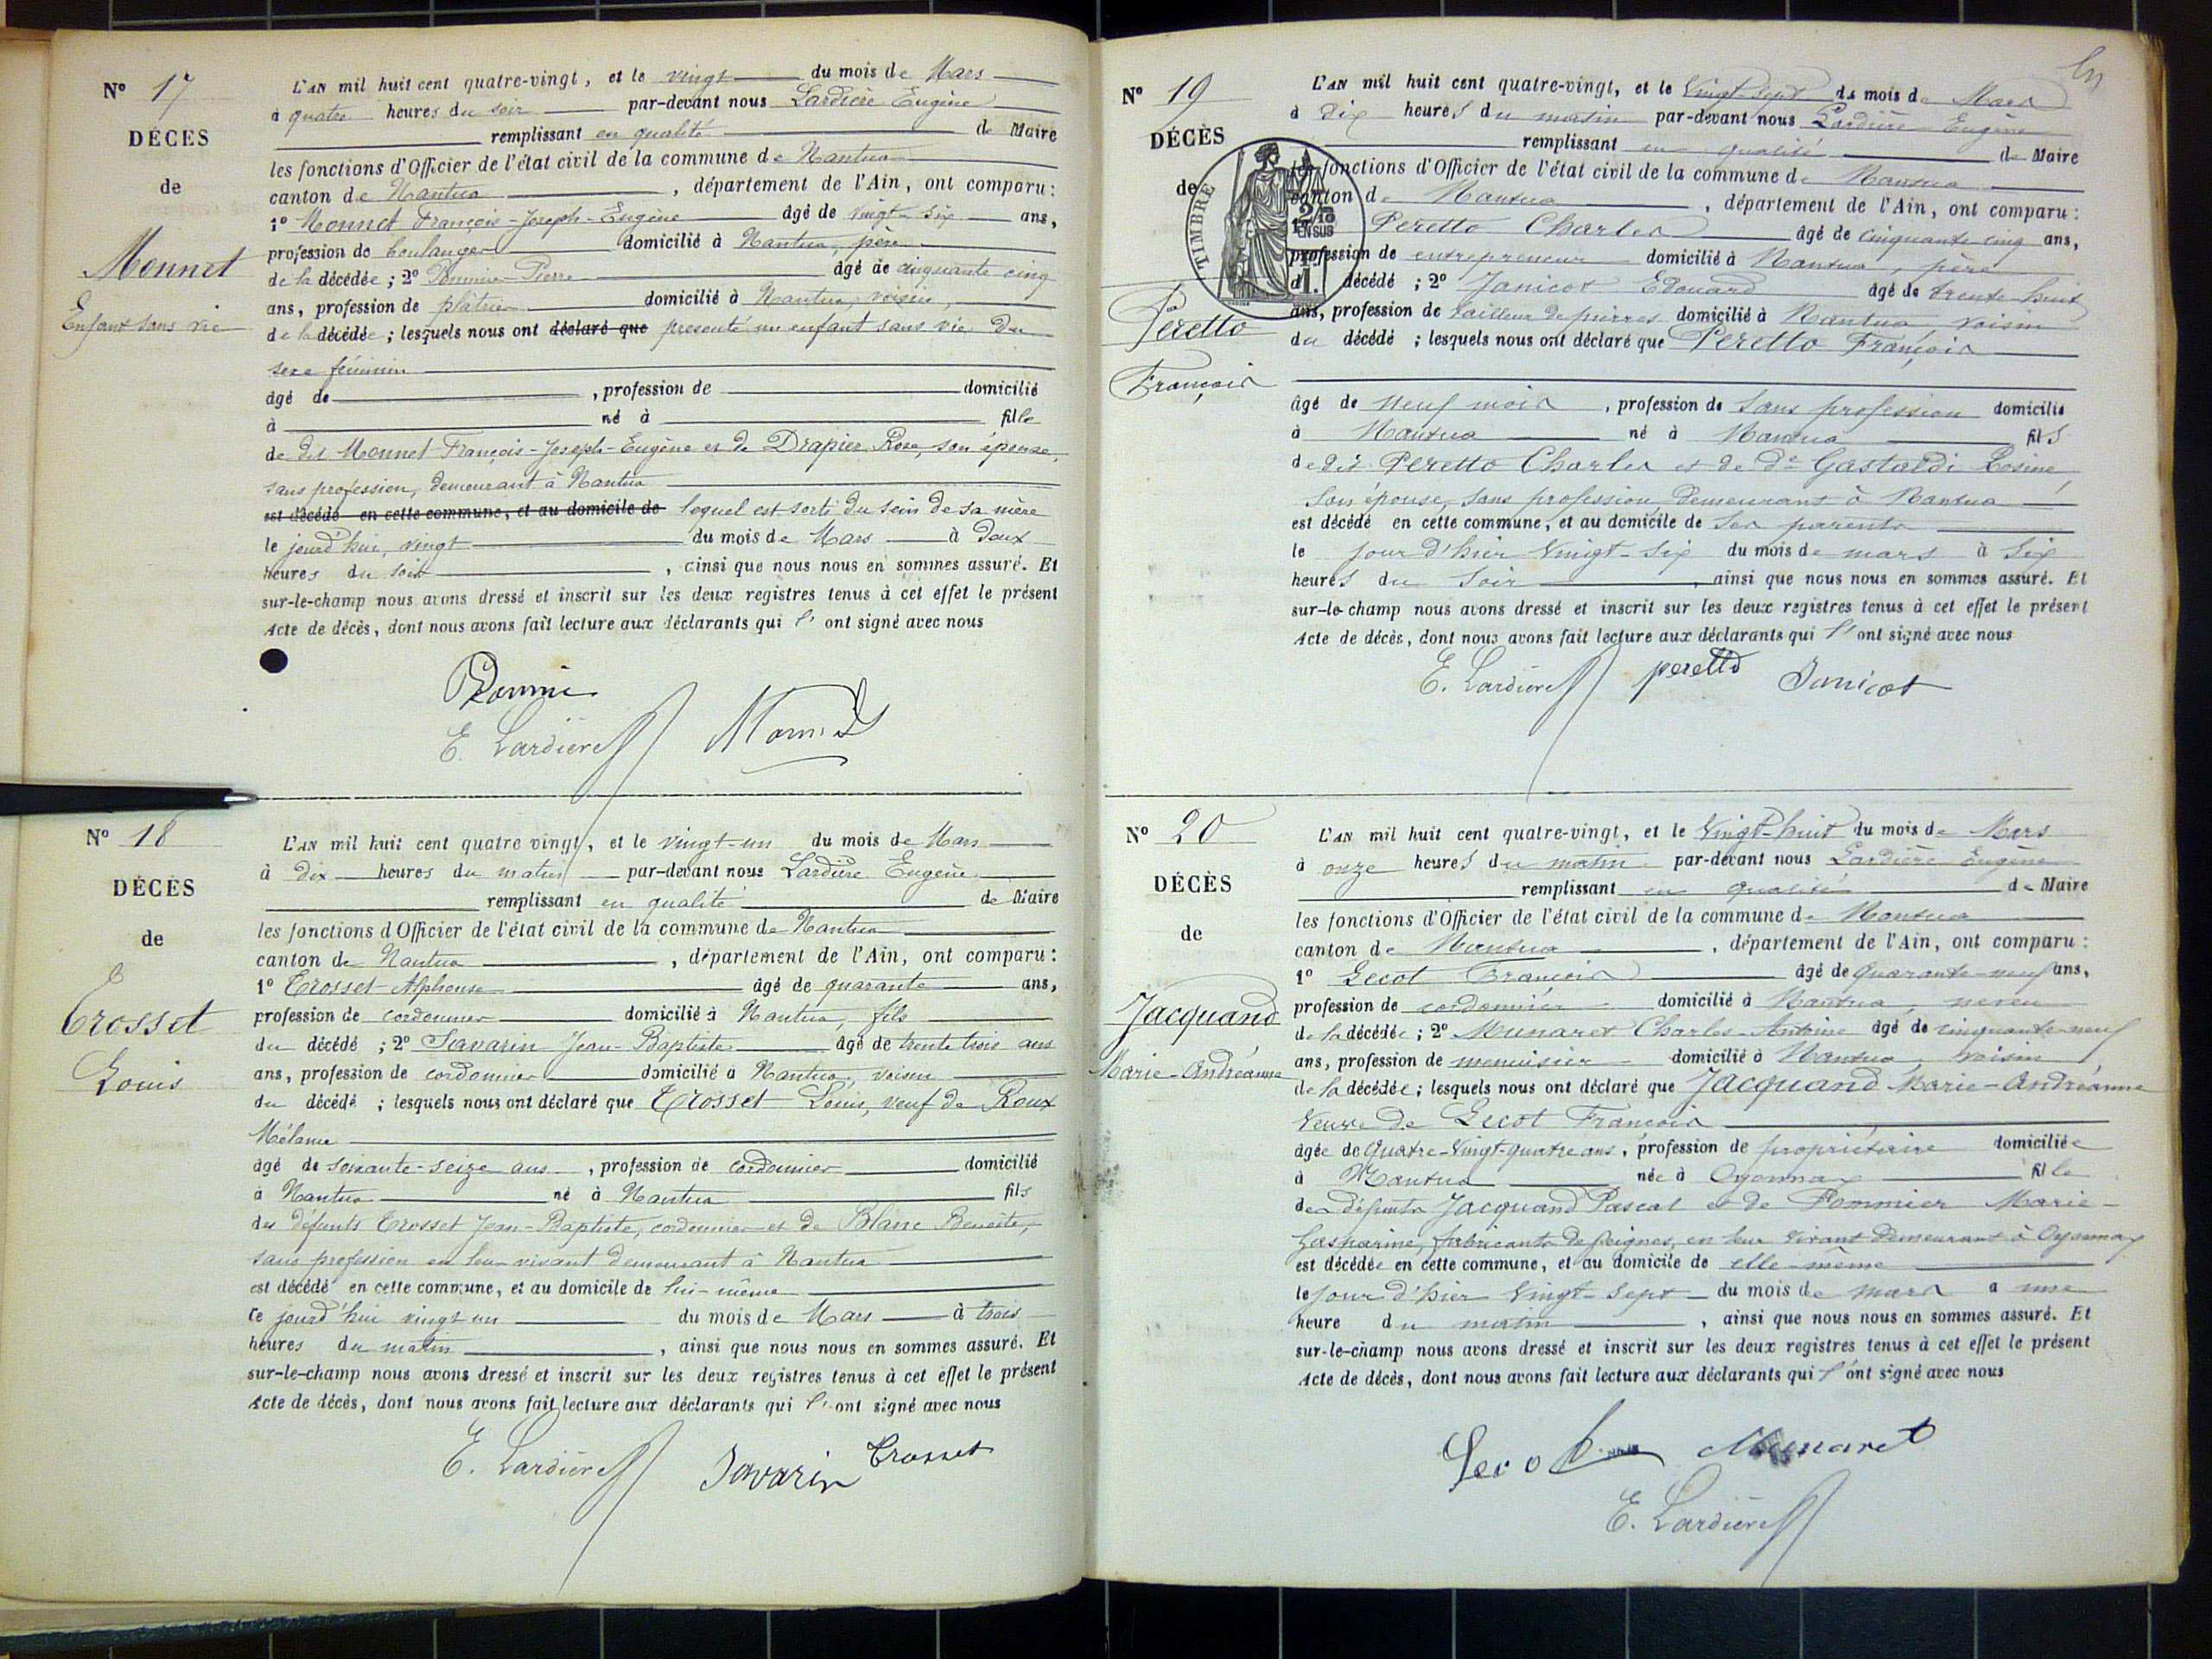 Nº 17
DÉCES
de
Monnet
Enfant sans vie
L'AN mil huit cent quatre-vingt, et le vingt du mois de Mars
à quatre heures du soir par-devant nous Lardière Eugène
remplissant en qualité de Maire
les fonctions d'Officier de l'état civil de la commune de Nantua
canton de Nantua, département de l'Ain, ont comparu:
1º Monnet François-Joseph-Eugène âgé de vingt-six ans,
profession de boulanger domicilié à Nantua, père
de la décédée; 2º Pierre âgé de cinquante cinq
ans, profession de plâtrier domicilié à Nantua, voisin,
de la décédée; lesquels nous ont déclaré que presenté un enfant sans vie du
sexe féminin
âgé de , profession de domicilié
à né à fille
de dit Monnet François-Joseph-Eugène et de Drapier Rose, son épouse,
sans profession, demeurant à Nantua
est décédé en cette commune, et au domicile de lequel est sorti du sein de sa mère
le jourd'hui, vingt du mois de Mars à deux
heures du soir, ainsi que nous nous en sommes assuré. Et
sur-le-champ nous avons dressé et inscrit sur les deux registres tenus à cet effet le présent
Acte de décès, dont nous avons fait lecture aux déclarants qui l' ont signé avec nous
E. Lardière
Nº 18
DÉCÈS
de
Crosset
Louis
L'AN mil huit cent quatre vingt, et le vingt-un du mois de Mars
à dix heures du matin par-devant nous Lardière Eugène
remplissant en qualité de Maire
les fonctions d'Officier de l'état civil de la commune de Nantua
canton de Nantua, département de l'Ain, ont comparu:
1º Crosset Alphonse âgé de quarante ans,
profession de cordonnier domicilié à Nantua, fils
du décédé; 2º Savarin Jean-Baptiste âgé de trente trois ans
ans, profession de cordonnier domicilié à Nantua, voisin
du décédé; lesquels nous ont déclaré que Crosset Louis, veuf de Roux
Mélanie
âgé de soixante-seize ans, profession de cordonnier domicilié
à Nantua né à Nantua fils
des défunts Crosset Jean-Baptiste, cordonnier et de Blanc Benoîte,
sans profession en leur vivant demeurant à Nantua
est décédé en cette commune, et au domicile de lui-même
le jourd'hui vingt un du mois de Mars à trois
heures du matin, ainsi que nous nous en sommes assuré. Et
sur-le-champ nous avons dressé et inscrit sur les deux registres tenus à cet effet le présent
Acte de décès, dont nous avons fait lecture aux déclarants qui l' ont signé avec nous
E. Lardière Savarin Crosset
Nº 19
DÉCÈS
de
TIMBRE
Peretto
François
L'AN mil huit cent quatre-vingt, et le Vingt-sept du mois de Mars
à dix heures du matin par-devant nous Lardière Eugène
remplissant en qualité de Maire
les fonctions d'Officier de l'état civil de la commune de Nantua
canton de Nantua, département de l'Ain, ont comparu:
1º Peretto Charles âgé de cinquante cinq ans,
profession de entrepreneur domicilié à Nantua, père
du décédé; 2º Janicot Edouard âgé de trente-huit
ans, profession de tailleur de pierres domicilié à Nantua, voisin
du décédé; lesquels nous ont déclaré que Peretto François
âgé de neuf mois, profession de sans profession domicilié
à Nantua né à Nantua fils
de dit Peretto Charles et de de Gastaldi Rosine,
son épouse, sans profession, demeurant à Nantua
est décédé en cette commune, et au domicile de ses parents
le jour d'hier vingt-six du mois de mars à six
heures du soir, ainsi que nous nous en sommes assuré. Et
sur-le-champ nous avons dressé et inscrit sur les deux registres tenus à cet effet le présent
Acte de décès, dont nous avons fait lecture aux déclarants qui l' ont signé avec nous
E. Lardière peretto Janicot
Nº 20
DÉCÈS
de
Jacquand
Marie-Andréanne
L'AN mil huit cent quatre-vingt, et le Vingt-huit du mois de Mars
à onze heures du matin par-devant nous Lardière Eugène
remplissant en qualité de Maire
les fonctions d'Officier de l'état civil de la commune de Nantua
canton de Nantua, département de l'Ain, ont comparu:
1º Lecot François âgé de quarante-neuf ans,
profession de cordonnier domicilié à Nantua, neveu
de la décédée; 2º Munaret Charles-Antoine âgé de cinquante-neuf
ans, profession de menuisier domicilié à Nantua, voisin
de la décédée; lesquels nous ont déclaré que Jacquand Marie-Andréanne
Veuve de Lecot François
âgée de quatre-vingt-quatre ans, profession de propriétaire domiciliée
à Nantua née à Oyonnax fille
des défunts Jacquand Pascal et de Pommier Marie-
Gasparine, fabricants de peignes, en leur vivant demeurant à Oyonnax
est décédée en cette commune, et au domicile de elle-même
le jour d'hier vingt-sept du mois de mars à une
heure du matin, ainsi que nous nous en sommes assuré. Et
sur-le-champ nous avons dressé et inscrit sur les deux registres tenus à cet effet le présent
Acte de décès, dont nous avons fait lecture aux déclarants qui l' ont signé avec nous
Lecot Munaret
E. Lardière